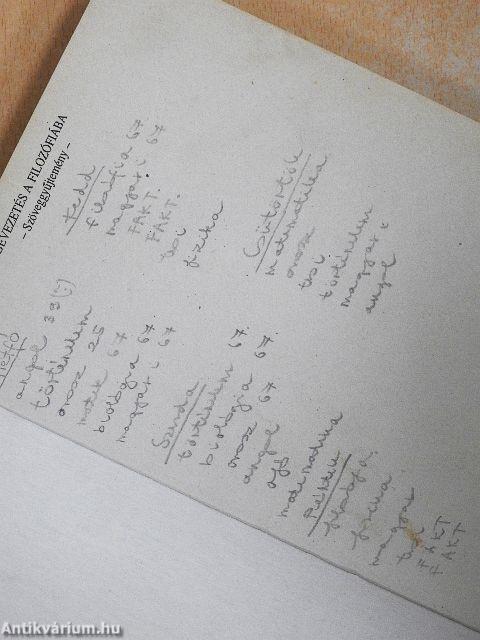 BEVEZETÉS A FILOZÓFIÁBA
– Szöveggyűjtemény –
Hétfő
angol 39 (:)
történelem
orosz 25
matek 67
biológia 67
magyar i 67
Kedd
filozófia 67
magyar i 67
FAKT.
FAKT.
tesi
fizika
Szerda
történelem 67.
biológia 67
orosz 67
angol
ofő
matematika
Csütörtök
matematika
orosz
tesi
történelem
magyar
angol
Péntek
filozófia
fizika
magyar
tesi
FAKT
FAKT
Antikvárium.hu